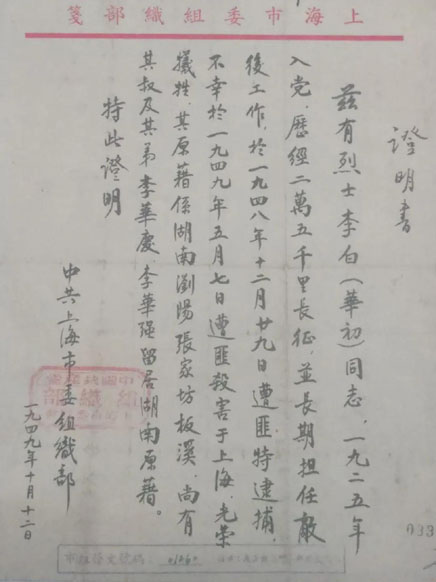 上海市委組織部箋
證明書
兹有烈士李白(華初)同志，一九二五年
入党，歷經二萬五千里長征，並長期担任敵
後工作，於一九四八年十二月廿九日遭匪特逮捕，
不幸於一九四九年五月七日遭匪殺害于上海，光荣
犧牲，其原藉係湖南瀏陽張家坊板溪，尚有
其叔及其弟李華慶李華强留居湖南原藉。
特此證明
中共上海市委組織部
一九四九年十月十二日
組織部
033